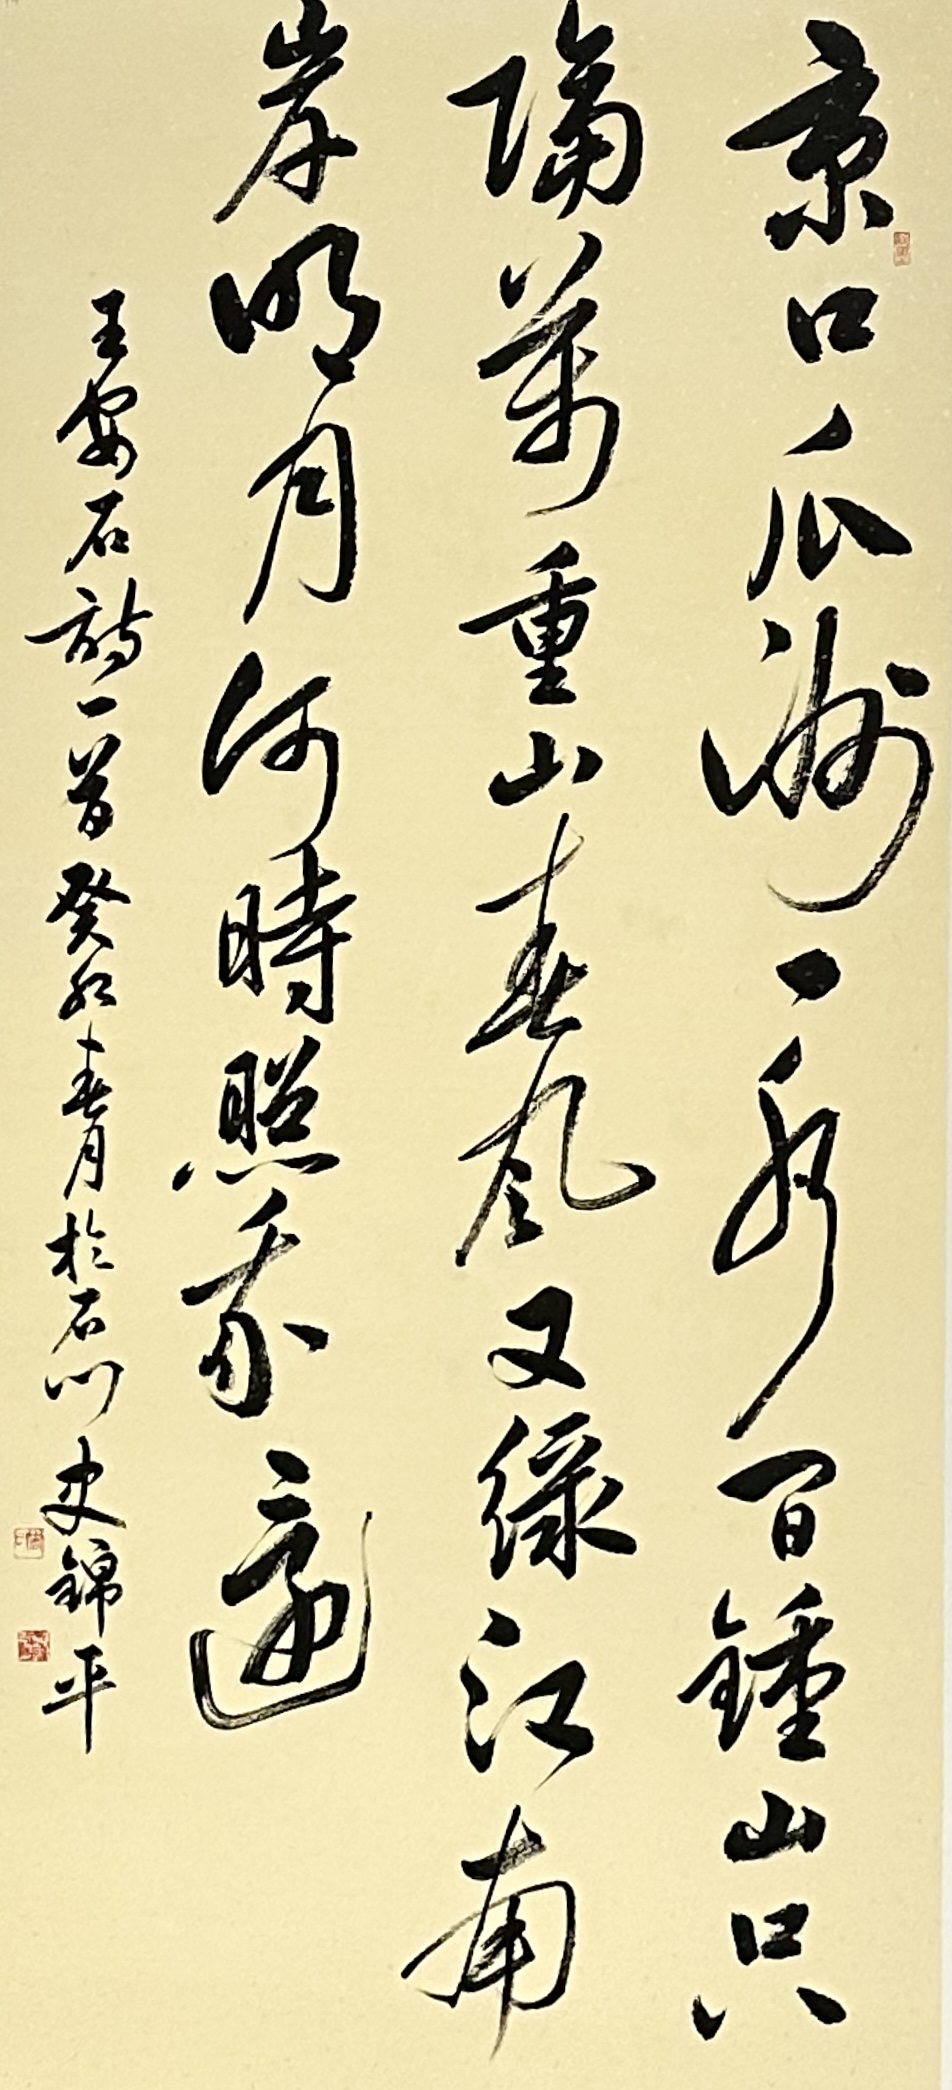 京口瓜洲一水間鍾山只
隔萬重山春風又綠江南
岸明月何時照我還
王安石詩一首癸卯春月於石門史錦平